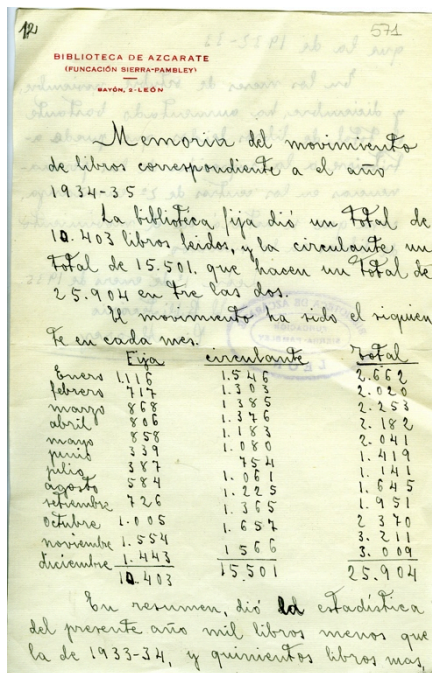 12
571
BIBLIOTECA DE AZCARATE
(FUNCACIÓN SIERRA-PAMBLEY)
BAYÓN, 2-LEÓN
Memoria del movimiento
de libros correspondiente a el año
1934-35
La biblioteca fija dió un total de
10.403 libros leidos, y la circulante un
total de 15.501. que hacen un total de
25.904 en tre las dos.
El movimiento ha sido el siguien
te en cada mes.
Fija circulante total
Enero 1.116 1.546 2.662
febrero 717 1.303 2.020
marzo 868 1.385 2.253
abril 806 1.376 2.182
mayo 858 1.183 2.041
junio 339 1.080 1.419
julio 387 754 1.141
agosto 584 1.061 1.645
setiembre 726 1.225 1.951
octubre 1.005 1.365 2 370
noviembre 1.554 1.657 3.211
diciembre 1.443 1 566 3.009
10.403 15.501 25.904
En resumen, dió la estadística
del presente año mil libros menos que
la de 1933-34, y quinientos libros mas,